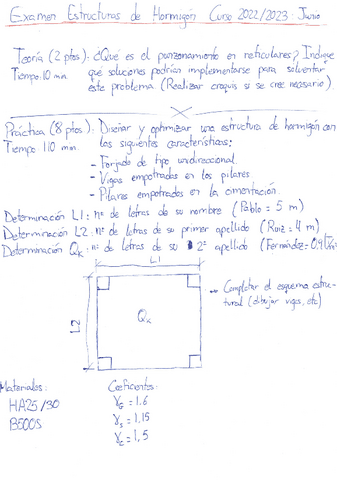 Examen Estructuras de Hormigón Curso 2022/2023. Junio
Teoría (2 ptos). ¿Qué es el punzonamiento en reticulares? Indique
Tiempo: 10 min. qué soluciones podrían implementarse para solventar
este problema (Realizar croquis si se cree necesario)
Práctica (8 ptos). Diseñar y optimizar una estructura de hormigón con
Tiempo 110 min. las siguientes características:
- Forjado de tipo unidireccional.
- Vigas empotradas en los pilares
- Pilares empotrados en la cimentación.
Determinación L1: nº de letras de su nombre (Pablo = 5 m)
Determinación L2: nº de letras de su primer apellido (Ruiz = 4 m)
Determinación Qk: nº de letras de su 2º apellido (Fernández = 0,9
L1
L2
Qk
→ Completar el esquema estruc-
tural (dibujar vigas, etc)
Materiales:
HA25/30
B500S
Coeficientes:
γG = 1,6
γs = 1,15
γc = 1,5